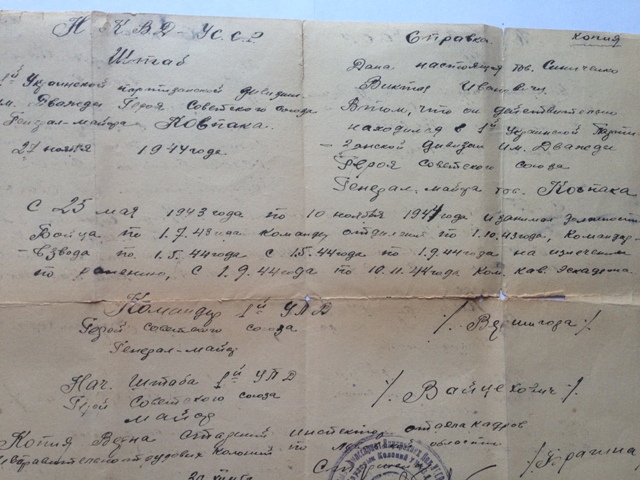 НКВД - УССР
Штаб
1й Украинской партизанской дивизии
им. Дважды Героя Советского Союза
Генерал-майора Ковпака.
27 ноября 1944 года
копия
Справка.
Дана настоящая тов. Синиченко
Виктор Иванович
В том, что он действительно
находился в 1й Украинской Парти
- занской дивизии им. Дважды
Героя Советского Союза
Генерал-майора тов. Ковпака
С 25 мая 1943 года по 10 ноября 1944 года и занимал должности
Бойца по 1.7.43 года командир отделения по 1.10.43 года, Командир
- взвода по 1.5.44 года с 1.5.44 года по 1.9.44 года на излечении
по ранению, с 1.9.44 года по 10.11.44 года Ком. кав. эскадрона.
Командир 1й УПД
Герой Советского союза
Генерал-майор
/. Вершигора ./
Нач. Штаба 1й УПД
Герой Советского союза
майор
/. Войцехович ./
Копия Верна Старший инспектор отдела кадров
Исправительно трудовых Колоний по области